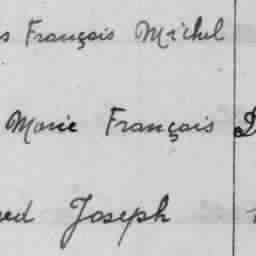 s François Michel
Marie François D
ed Joseph